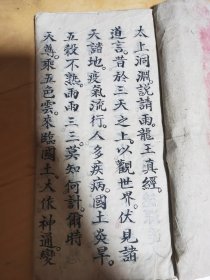 太上洞淵說請雨龍王真經
道言昔於三天之上。以觀世界。伏見諸
天諸地。疫氣流行。人多疾病。國土炎旱。
五穀不熟。雨雨三三。莫知何計。爾時
天尊。乘五色雲。來臨國土。大作神通。變